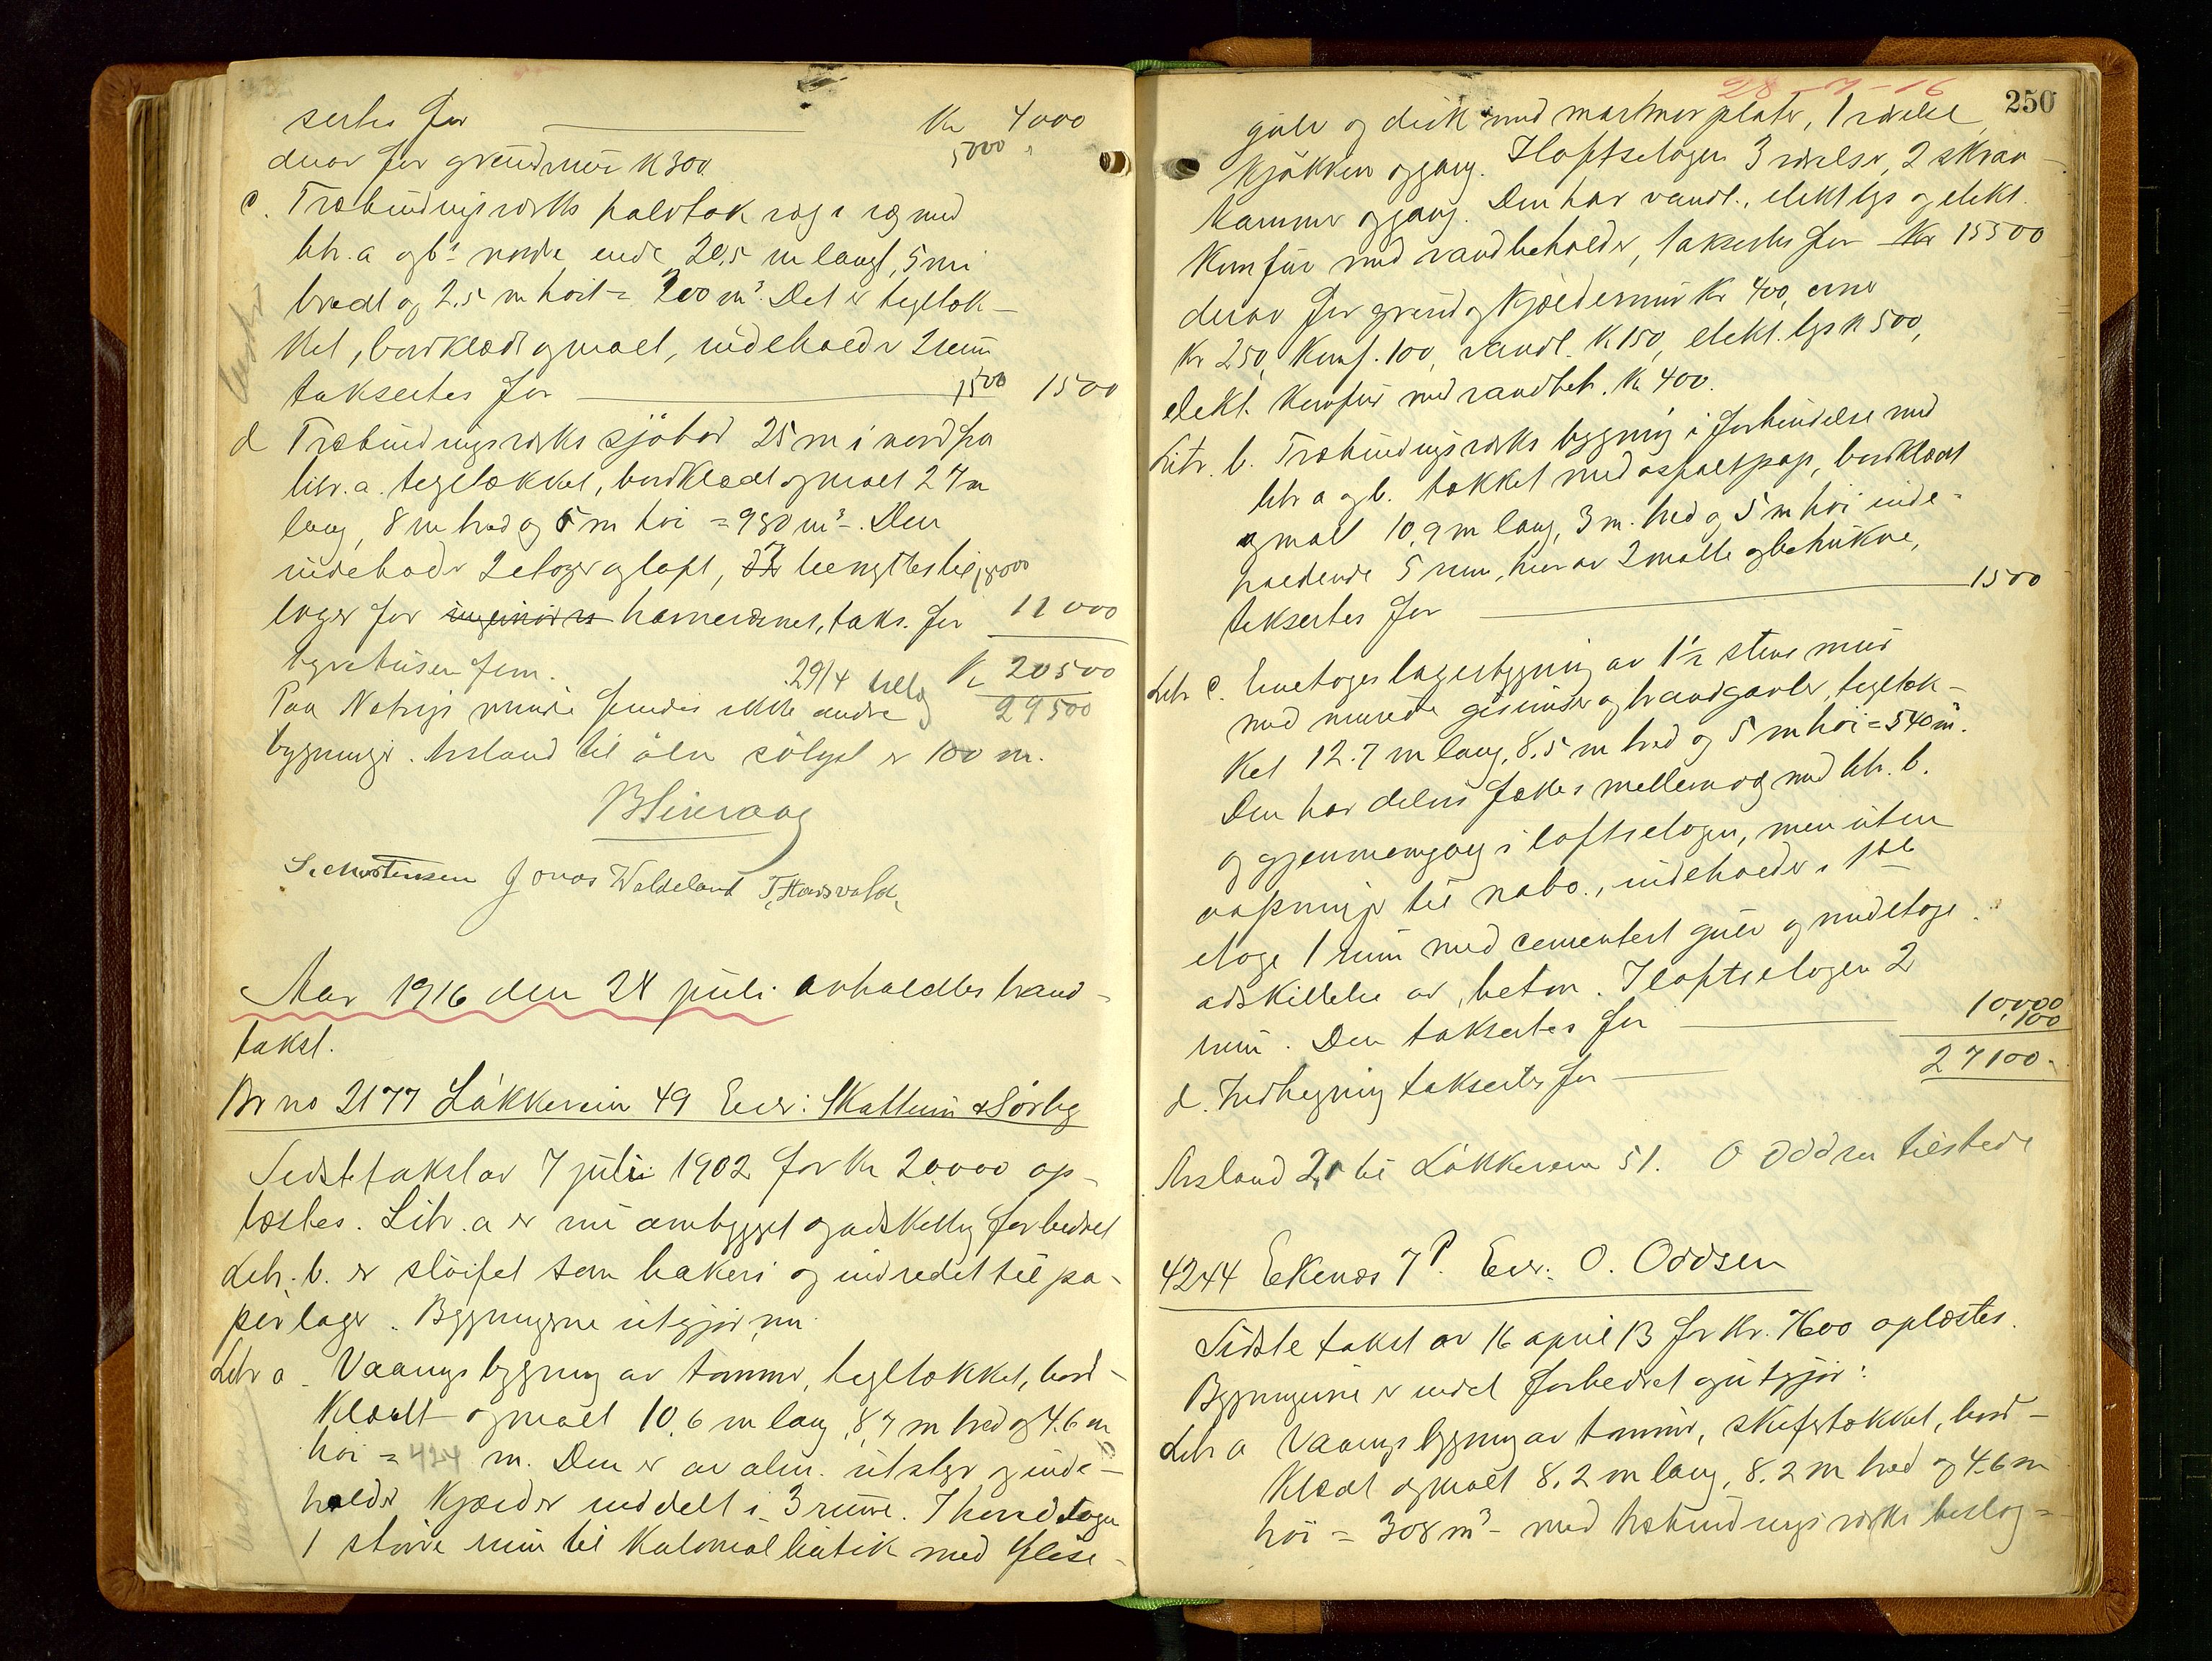 sertes for Kr 4000
5000
derav for grundmur K 300
c. Træbindingsverks halvtak væg i væg med
litr. a og b's nordre ende 20,5 m langt, 5 m i
bredt og 2.5 m høit = 200 m³. Det er tegltæk-
ket, bordklædt og malt, indeholder 2 rum
taksertes for 1500 1500
d Træbindingsverks sjøbod 25 m i nord fra
litr. a. teglækket, bordklædt og malt 24 m
lang, 8 m bred og 5 m høi = 980 m³. Den
indeholder 2 etager og loft, benyttes til 18000
lager for havnevæsnet, taks. for 11 000
Kr 20500
29/4 29500
Paa Notvigs findes ikke andre
bygninger. Avstand til 100 m.
S. Mortensen Jonas Waldeland T. Hausvold
Aar 1916 den 28 juli avholdtes brand-
takst.
Br no 2177 Løkkevein 49 Eier: Skattum & Sørby
Sidste takst av 7 juli 1902 for Kr 20.000 op-
læstes. Litr. a er nu ombygget og adskillig forbedret
Litr. b. er sløifet som bakeri og indredet til pa-
pirlager. Bygningerne utgjør nu:
Litr a. Vaaningsbygning av tømmer, tegltækket, bord-
klædt og malt 10,6 m lang, 8,7 m bred og 4.6 m
høi = 424 m. Den er av alm. utstyr og inde-
holder Kjælder inddelt i 3 rum. I hovedetagen
1 større rum til Kolonial butik med flise-
28-7-16
250
gulv og disk med marmorplater, 1 værelse,
Kjøkken og gang. I loftsetagen 3 værelser, 2 skraa-
kammer og gang. Den har vandl., elekt lys og elekt.
Komfur med vandbeholder, taksertes for Kr 15500
derav for grund og Kjældermur Kr 400, ovne
Kr 250, Komf. 100, vandl. K 150, elekt. lys K 500,
elekt. Komfur med vandbeh. Kr 400.
Litr. b. Træbindingsverks bygning i forbindelse med
litr a og b. tækket med asfaltpap, bordklædt
og malt 10,9 m lang, 3 m. bred og 5 m høi inde-
holdende 5 rum, hvorav 2 malte og betrukne,
taksertes for 1500
Litr c. Enetages lagerbygning av 1½ stens mur
med murede gesimser og brandgavler, tegltæk-
ket 12.7 m lang, 8.5 m bred og 5 m høi = 540 m³.
Den har delvis fælles mellemvæg med litr. b.
og gjennemgang i loftsetagen, men uten
aapninger til nabo., indeholder i 1ste
etage 1 rum med cementert gulv og midletage
adskillelse av beton. I loftsetagen 2
rum. Den taksertes for 10,000
100
d. Indhegning taksertes for 27100
Avstand 2,1 til Løkkevein 51. O Oddsen tilstede
4244 Ekenæs 7P. Eier: O. Oddsen
Sidste takst av 16 april 13 for Kr. 7600 oplæstes.
Bygningerne er endel forbedret og utgjør:
Litr a Vaaningsbygning av tømmer, skifertækket, bord-
klædt og malt 8.2 m lang, 8.2 m bred og 4.6 m
høi = 308 m³ med træbindingsverks bislag